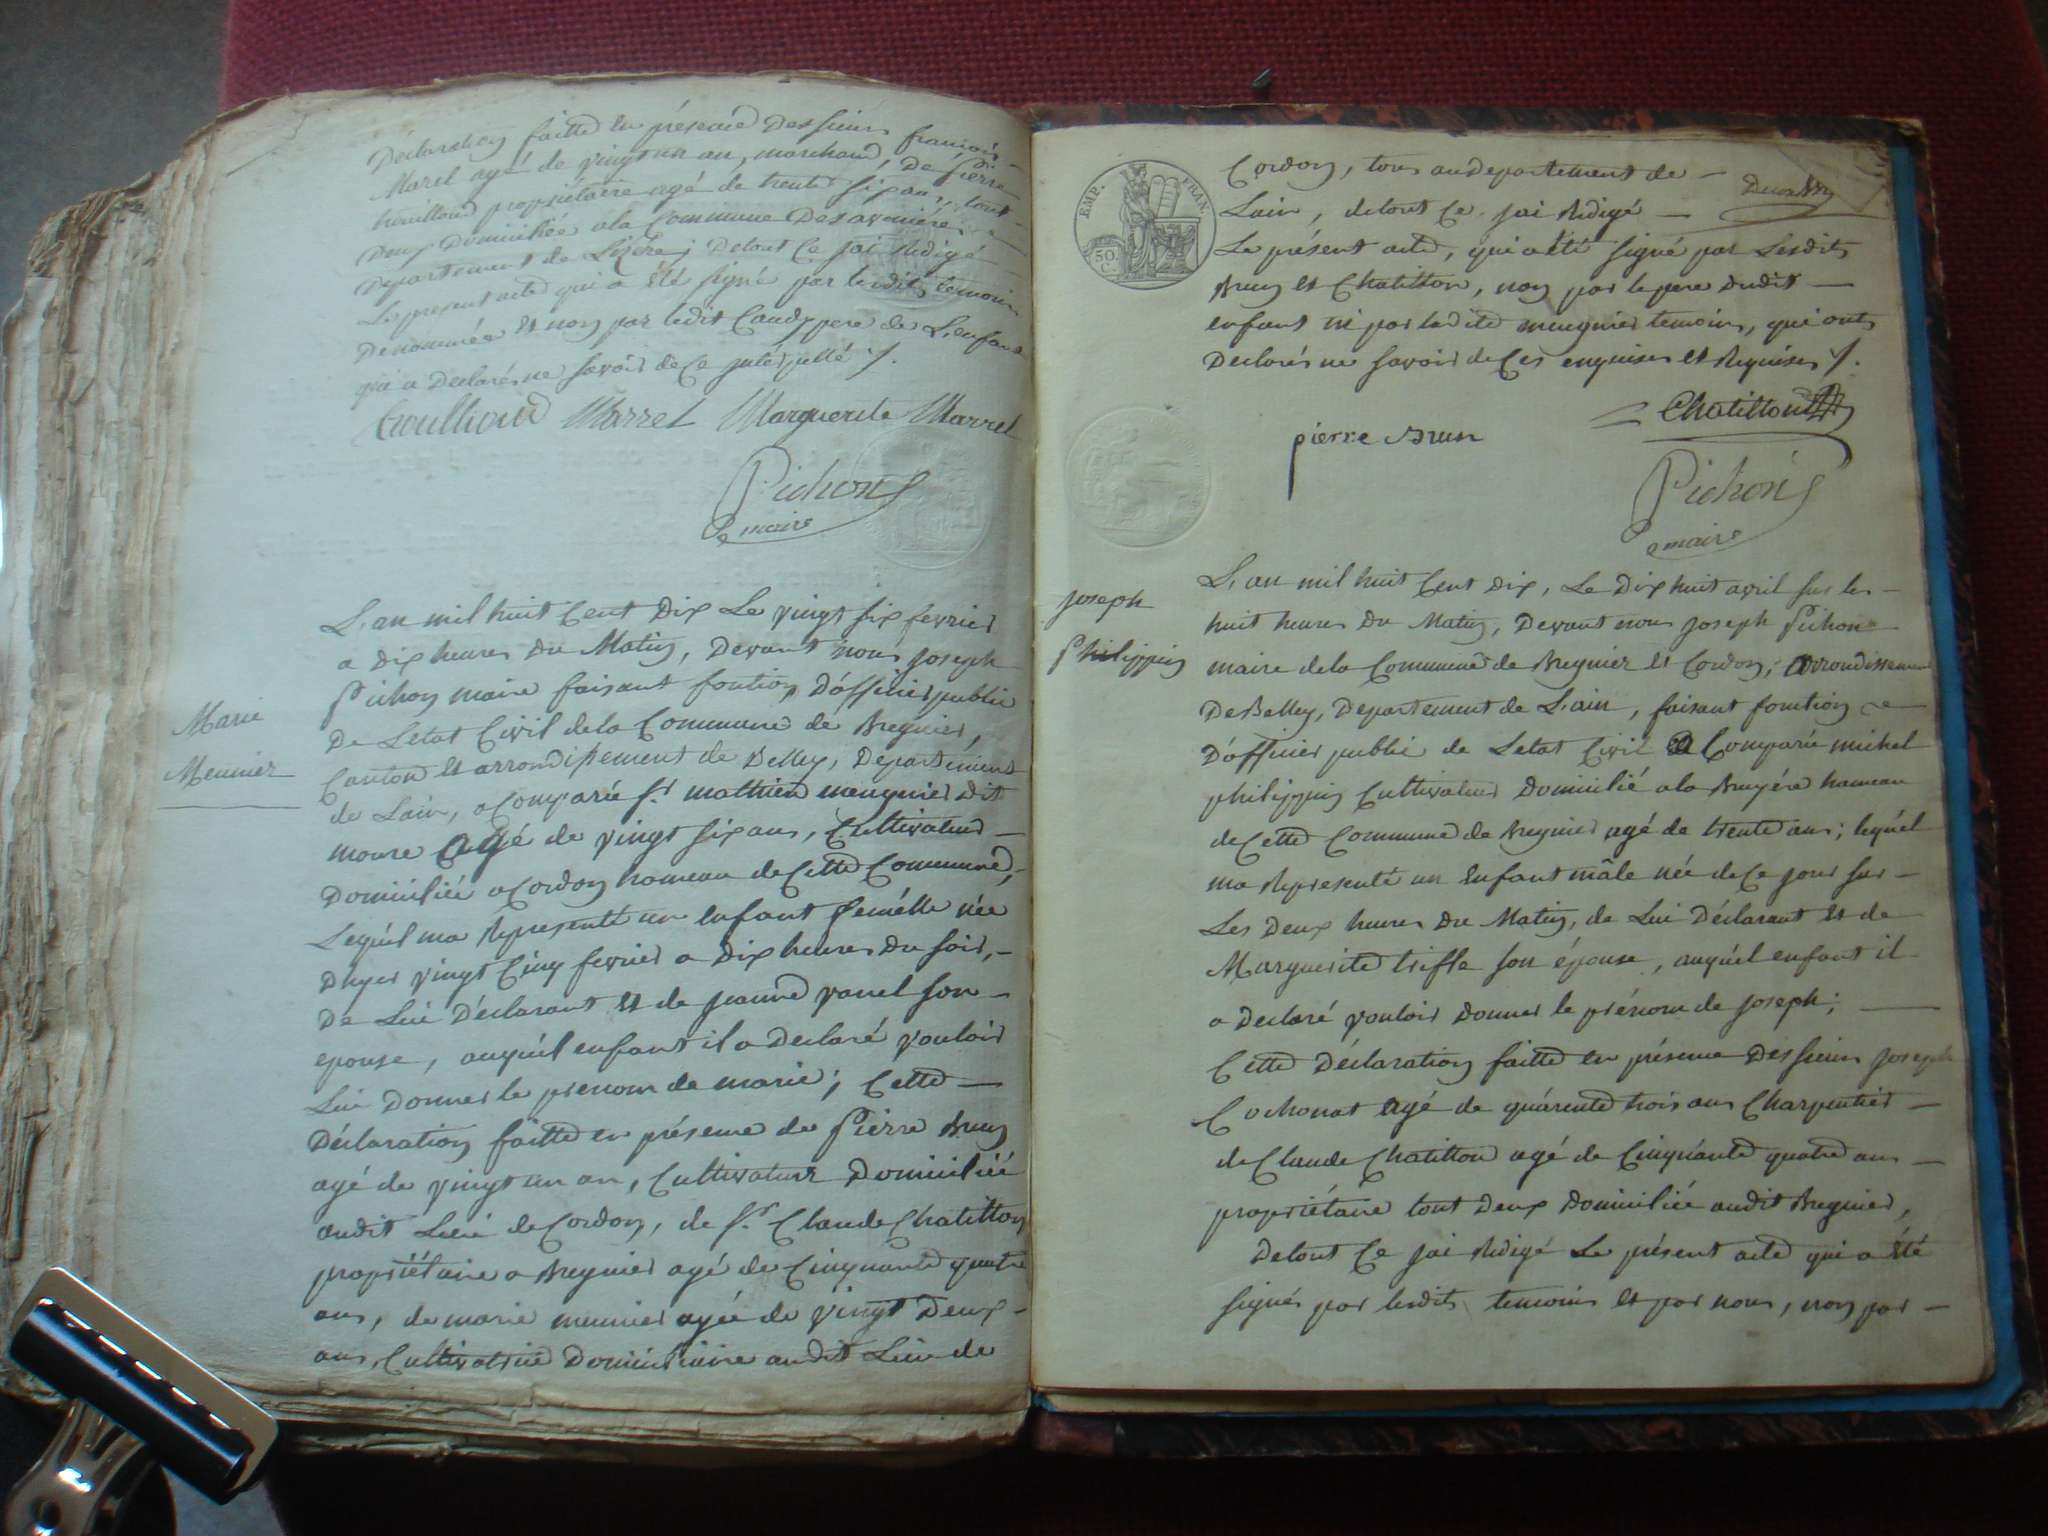 Déclaration faitte en présence des sieurs françois
Marel agé de vingt un an, marchand, De Pierre
houilloud propriétaire agé de trente six ans, tout
Deux Domiciliée a la Commune Des avenières
Departement de Lizère; De tout Ce jai Redigé
Le present acte qui a été signé par lesdits temoins
Denommée et non par ledit Caudy pere de L'enfant
qui a Declarés ne savoir de Ce interpellé ./.
houlhoud Marrel Marguerite Marrel
Pichon
maire
Marie
Meunier
L'an mil huit Cent Dix Le vingt six fevrier
a Dix heures Du Matin, Devant nous Joseph
Pichon maire faisant fontion D'officier public
De L'etat Civil de la Commune de Bregnier,
Canton et arrondissement de Belley, Departement
de Lain, a Comparée sr. mathieu meugnier dit
moure agé de vingt six ans, Cultivateur
Domiciliée a Cordon hameau de Cette Commune,
Lequel ma Representé un enfant femelle née
D'hyer vingt Cinq fevrier a Dix heures Du soir,
De Lui Déclarant et de jeanne varel son
epouse, auquel enfant il a Declaré vouloir
Lui Donner le prenom de marie; Cette
Déclaration faitte en présence de Pierre Brun
agé de vingt un an, Cultivateur Domiciliée
audit Lieu de Cordon, de sr. Claude Chatillon
propriétaire a Bregnier agé de Cinquante quatre
ans, de marie meunier agée de vingt Deux
ans Cultivatrice Domiciliaire audit Lieu de
EMP. FRAN.
50. C.
Cordon, tous au departement de
Lain, de tout Ce jai Redigé
Le présent acte, qui a été signé par Lesdits
Brun et Chatillon, non par le pere dudit
enfant ni par ladite meugnier temoin, qui ont
Declarés ne savoir de Ces enquises et Requises ./.
Chatillon
pierre Brun
Pichon
maire
joseph
Philippin
L'an mil huit Cent Dix, Le Dix huit avril sur les
huit heures Du Matin, Devant nous Joseph Pichon
maire de la Commune de Bregnier et Cordon, arrondissement
De Belley, Departement de L'ain, faisant fontion
D'officier public de L'etat Civil a Comparée michel
philippin Cultivateur Domicilié a la Bruyére hameau
de Cette Commune de Bregnier agé de trente ans; lequel
ma Representé un enfant mâle née de Ce jour sur
Les Deux heures Du Matin, de Lui Déclarant et de
Marguerite triffe son épouse, auquel enfant il
a Declaré vouloir Donner le prénom de joseph;
Cette Déclaration faitte en présence Des sieurs joseph
Cochonat agé de quarente trois ans Charpentier
de Claude Chatillon agé de Cinquante quatre ans
propriétaire tout Deux Domiciliée audit Bregnier,
De tout Ce jai Redigé Le présent acte qui a été
signés par lesdits temoins et par nous, non par